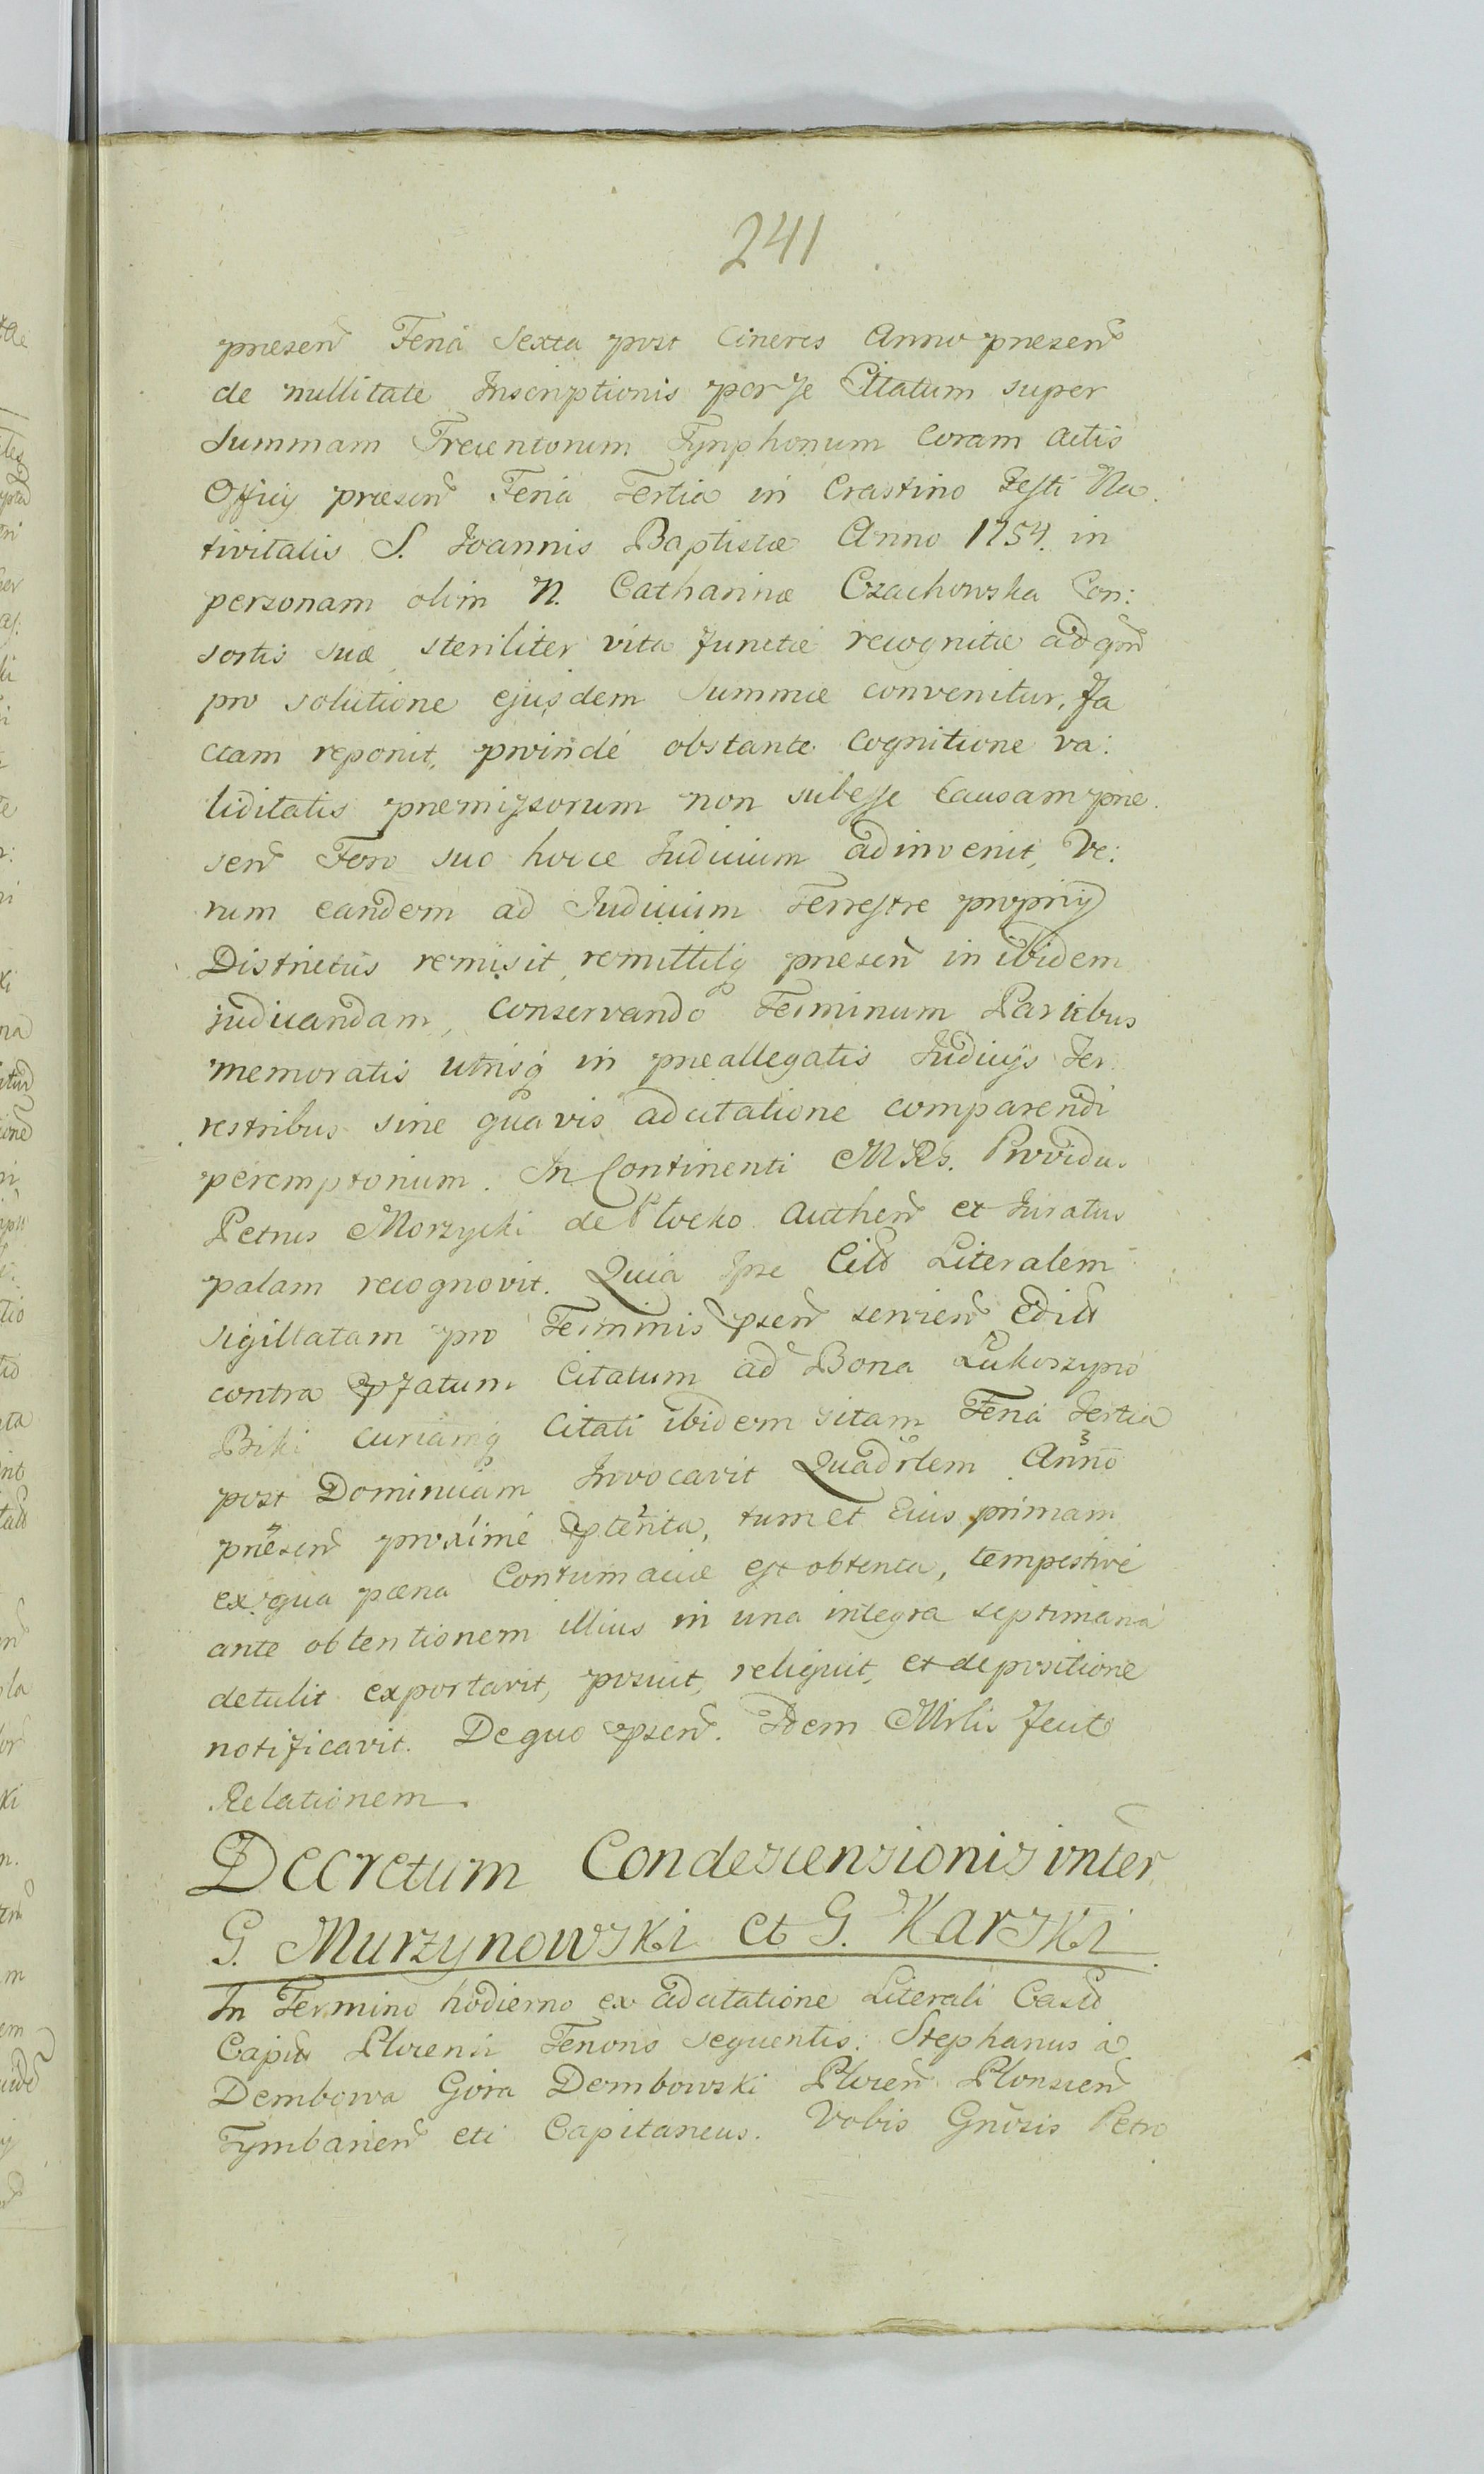 241
præsen Feriá Sexta post Cineres Anno præsen
de nullitate Inscriptionis per se Citatum super
Summam Trecentorum Tynphonum Coram Actis
Officij præsen Feria Tertia in Crastino Festi Na:
tivitatis S. Joannis Baptistæ Anno 1754. in
personam olim N. Catharinæ Czachowska Con:
sortis suæ steriliter vita functæ recognitæ ad qm
pro solutione ejusdem Summæ convenitur, fa
ctam reponit, proindé obstante Cognitione va:
liditatis præmissorum non subesse Causam præ:
sen Foro suo hocce Judicium adinvenit, Ve:
rum eandem ad Judicium Terrestre proprij
Districtûs remisit, remittitq præsen in ibidem
judicandam, Conservando Terminum Partibus
memoratis utrisq in præallegatis Judicijs Ter:
restribus sine quavis adcitatione comparendi
peremptorium. In Continenti MRls. Providus
Petrus Morzycki de Plocko Authen et Juratus
palam recognovit. Quia Ipse Citt Literalem
sigillatam pro Terminis psen servien Edict
contra pfatum Citatum ad Bona Lukoszyno
Biki Curiamq Citati ibidem sitam Feriá Tertia
post Dominicam Invocavit Quadrlem Anno
præsen proximé pterita, tum et Eius primam
ex qua pæna Contumaciæ est obtenta, tempestivé
ante obtentionem illius in una integra septimaná
detulit exportavit, posuit, reliquit, et depositione
notificavit. De quo psen. Idem Mrlis fecit
Relationem.
Decretum Condescensionis inter
G. Murzynowski et G. Karski
In Termino hodierno ex adcitatione Literali Castr
Capit Plocensi Tenoris sequentis: Stephanus á
Dembowa Gora Dembowski Plocen Plonscen
Tymbarien etc Capitaneus. Vobis Gnrsis Petro